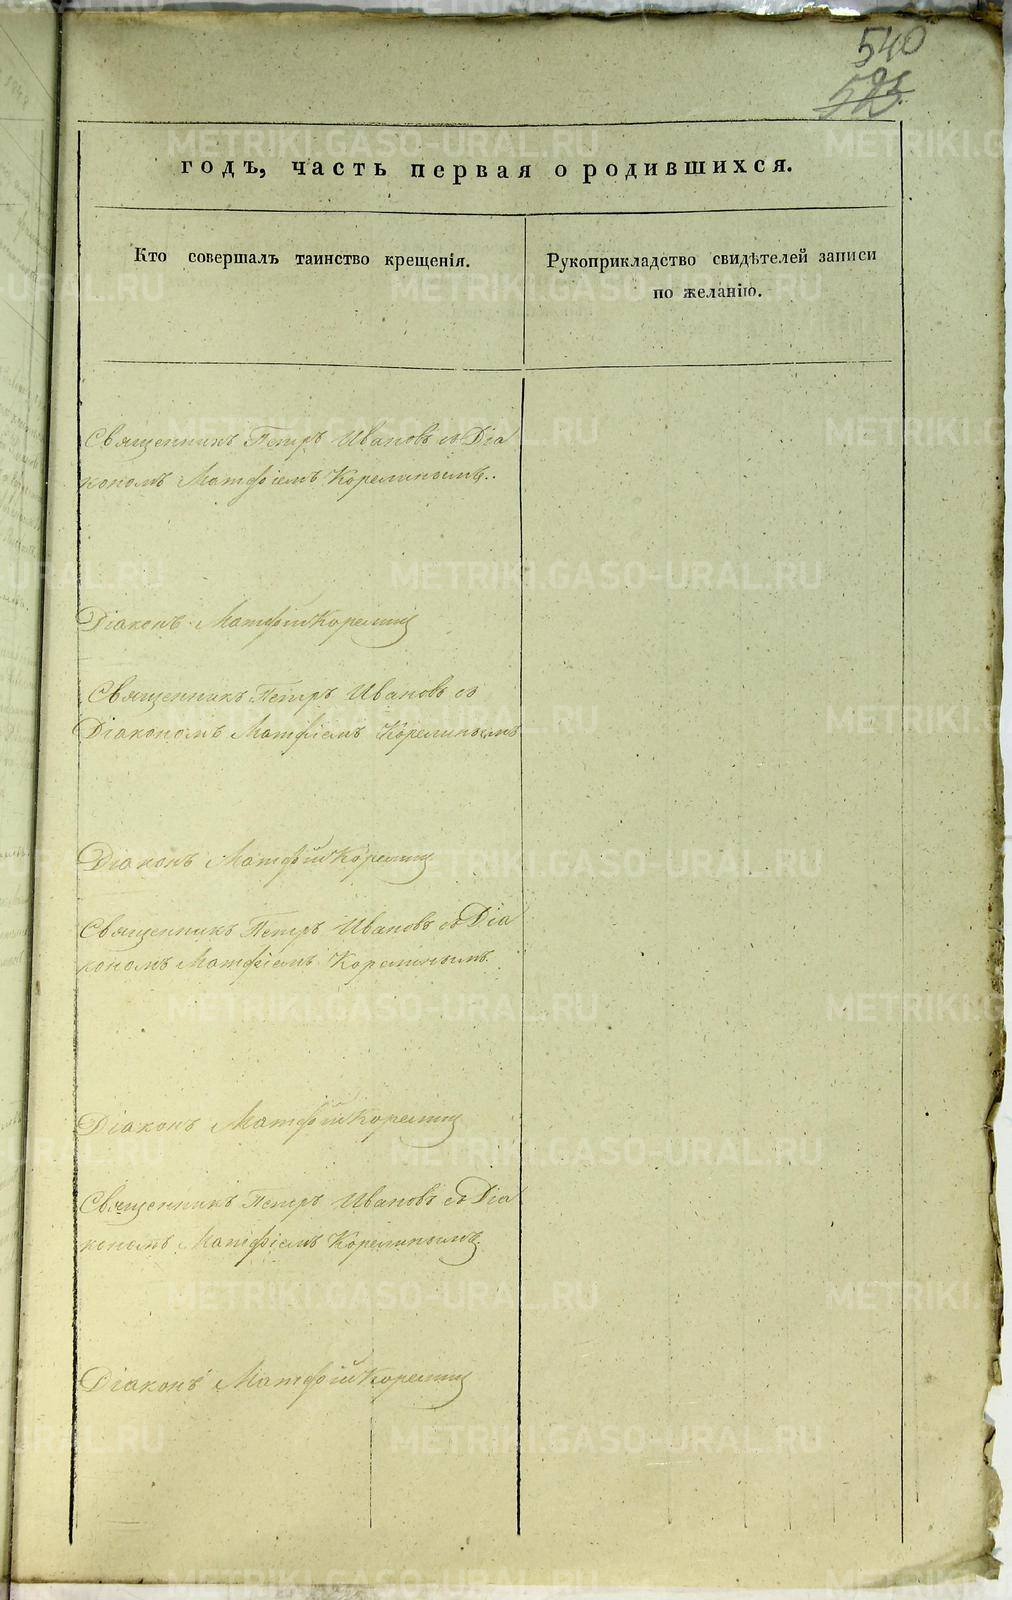 540
годъ, часть первая о родившихся.
Кто совершалъ таинство крещенія.
Рукоприкладство свидѣтелей записи
по желанію.
Священникъ Петръ Ивановъ съ Діа
кономъ Матфіемъ Корелинымъ.
Діаконъ Матфій Корелинъ
Священникъ Петръ Ивановъ съ
Діакономъ Матфіемъ Корелинымъ
Діаконъ Матфій Корелинъ
Священникъ Петръ Ивановъ съ Діа
кономъ Матфіемъ Корелинымъ.
Діаконъ Матфій Корелинъ
Священникъ Петръ Ивановъ съ Діа
кономъ Матфіемъ Корелинымъ.
Діаконъ Матфій Корелинъ
METRIKI.GASO-URAL.RU